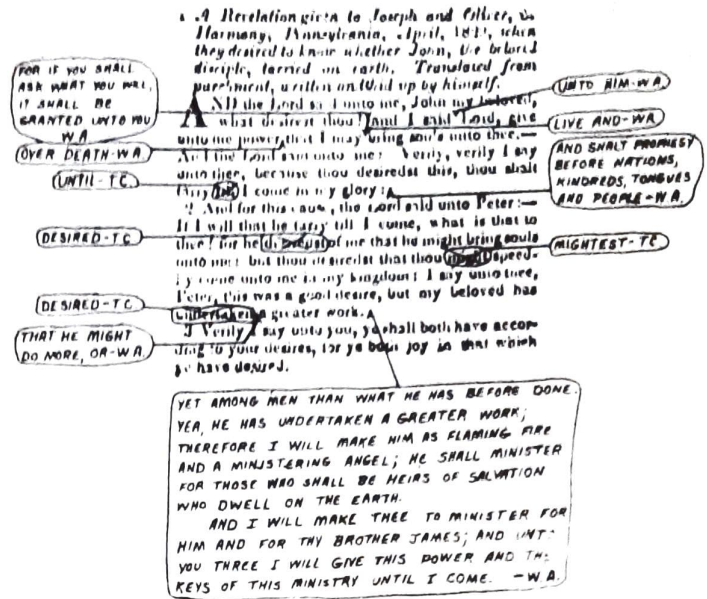 A Revelation given to Joseph and Oliver, in
Harmony, Pennsylvania, April, 1829, when
they desired to know whether John, the beloved
disciple, tarried on earth. Translated from
parchment, written and hid up by himself.
AND the Lord said unto me, John my beloved,
what desirest thou? and I said Lord, give
unto me power, that I may bring souls unto thee.—
And the Lord said unto me: Verily, verily I say
unto thee, because thou desiredst this, thou shalt
tarry I come in my glory:
2 And for this cause, the Lord said unto Peter:—
If I will that he tarry till I come, what is that to
thee? for he of me that he might bring souls
unto me: but thou desiredst that thou speed-
ily come unto me in my kingdom: I say unto thee,
Peter, this was a good desire, but my beloved has
undertaken a greater work.
3 Verily I say unto you, ye shall both have accor-
ding to your desires, for ye both joy in that which
ye have desired.
FOR IF YOU SHALL
ASK WHAT YOU WILL,
IT SHALL BE
GRANTED UNTO YOU
W A
OVER DEATH-W A.
UNTIL-T C.
DESIRED-T C
DESIRED-T C.
THAT HE MIGHT
DO MORE, OR-W A.
UNTO HIM-W A.
LIVE AND-W A
AND SHALT PROPHESY
BEFORE NATIONS,
KINDREDS, TONGUES
AND PEOPLE-W A.
MIGHTEST-T C
YET AMONG MEN THAN WHAT HE HAS BEFORE DONE.
YEA, HE HAS UNDERTAKEN A GREATER WORK;
THEREFORE I WILL MAKE HIM AS FLAMING FIRE
AND A MINISTERING ANGEL; HE SHALL MINISTER
FOR THOSE WHO SHALL BE HEIRS OF SALVATION
WHO DWELL ON THE EARTH.
AND I WILL MAKE THEE TO MINISTER FOR
HIM AND FOR THY BROTHER JAMES; AND UNT
YOU THREE I WILL GIVE THIS POWER AND TH
KEYS OF THIS MINISTRY UNTIL I COME. -W A.